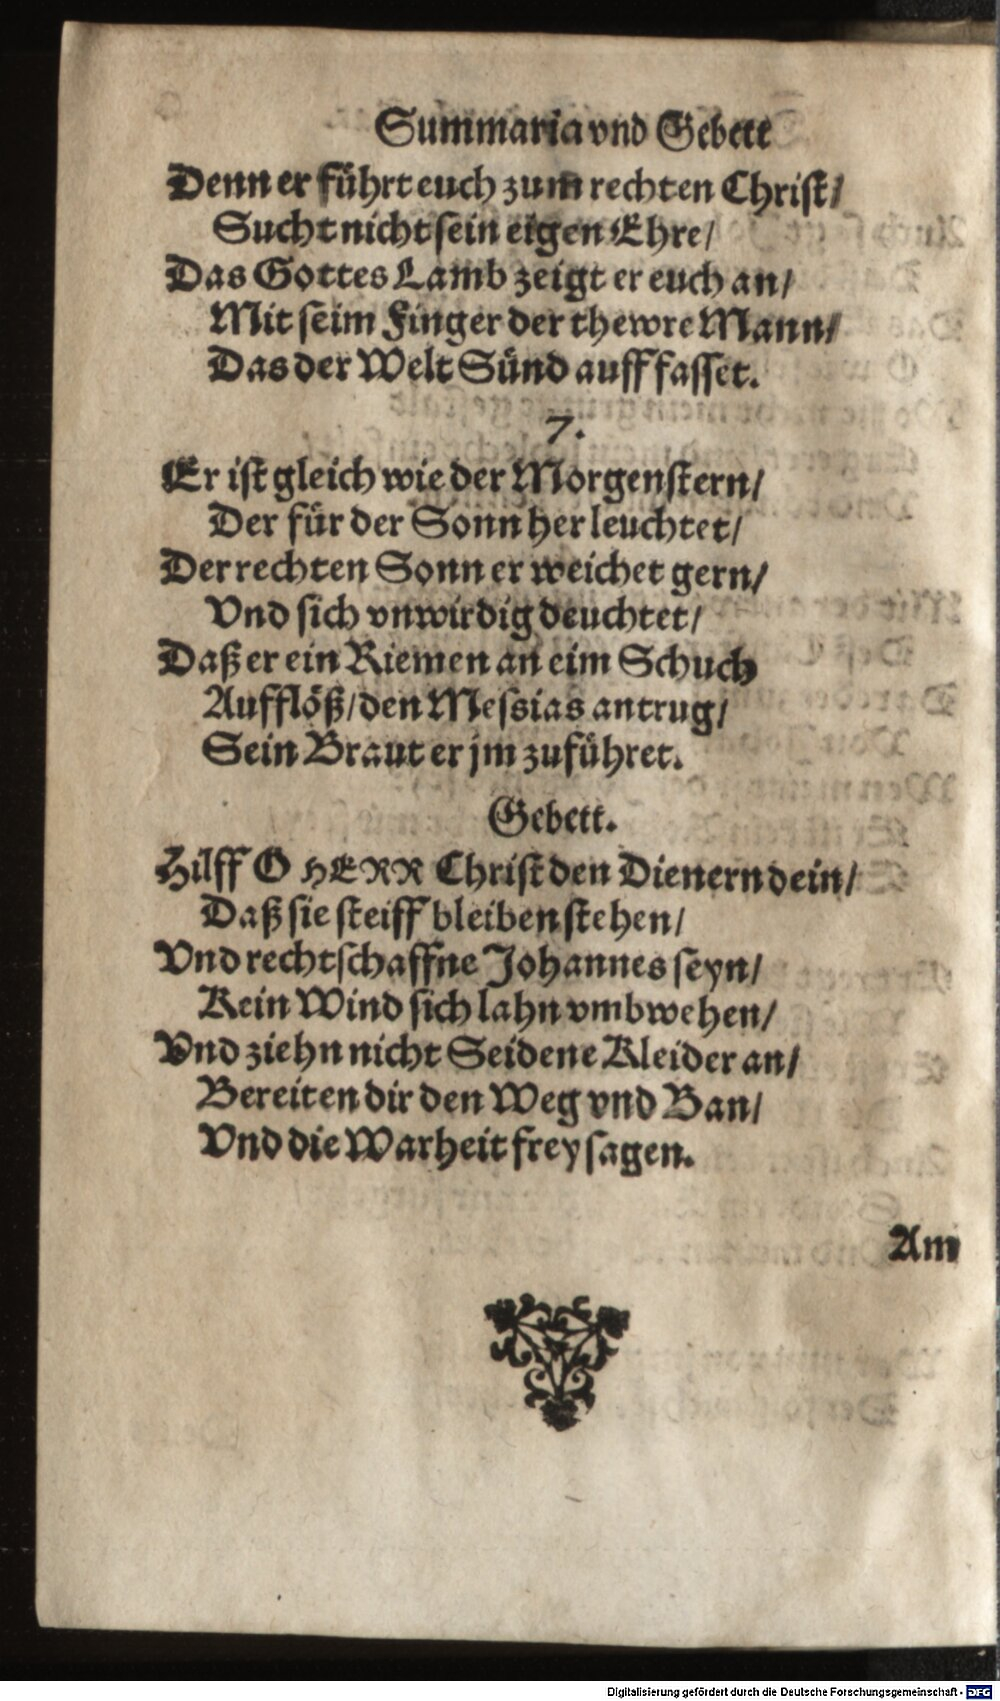 Summaria vnd Gebett
Denn er führt euch zum rechten Christ/
Sucht nicht sein eigen Ehre/
Das Gottes Lamb zeigt er euch an/
Mit seim Finger der thewre Mann/
Das der Welt Sünd auff fasset.
7.
Er ist gleich wie der Morgenstern/
Der für der Sonn her leuchtet/
Der rechten Sonn er weichet gern/
Vnd sich vnwirdig deuchtet/
Daß er ein Riemen an eim Schuch
Aufflöß/ den Messias antrug/
Sein Braut er jm zuführet.
Gebett.
Hilff O HERR Christ den Dienern dein/
Daß sie steiff bleiben stehen/
Vnd rechtschaffne Johannes seyn/
Kein Wind sich lahn vmbwehen/
Vnd ziehn nicht Seidene Kleider an/
Bereiten dir den Weg vnd Ban/
Vnd die Warheit frey sagen.
Am
Digitalisierung gefördert durch die Deutsche Forschungsgemeinschaft - DFG